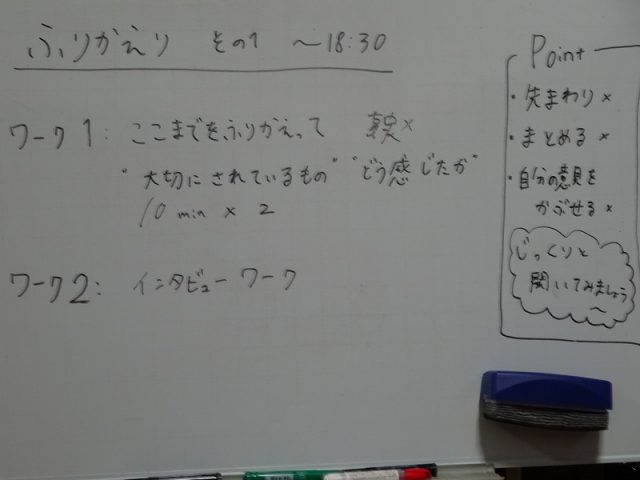 ふりかえり その1 〜18:30
ワーク1: ここまでをふりかえって
"大切にされているもの" "どう感じたか"
10 min × 2
ワーク2: インタビューワーク
Point
・先まわり×
・まとめる×
・自分の意見を
かぶせる×
じっくりと
聞いてみましょう〜